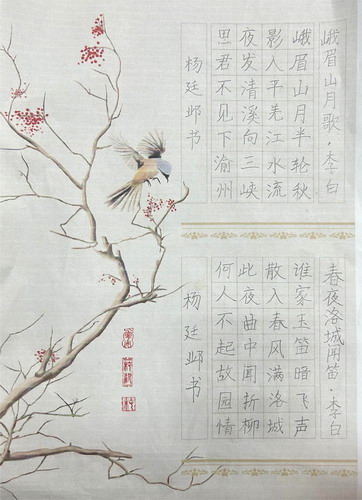 峨眉山月歌·李白
峨眉山月半轮秋
影入平羌江水流
夜发清溪向三峡
思君不见下渝州
杨廷邺书
春夜洛城闻笛·李白
谁家玉笛暗飞声
散入春风满洛城
此夜曲中闻折柳
何人不起故园情
杨廷邺书